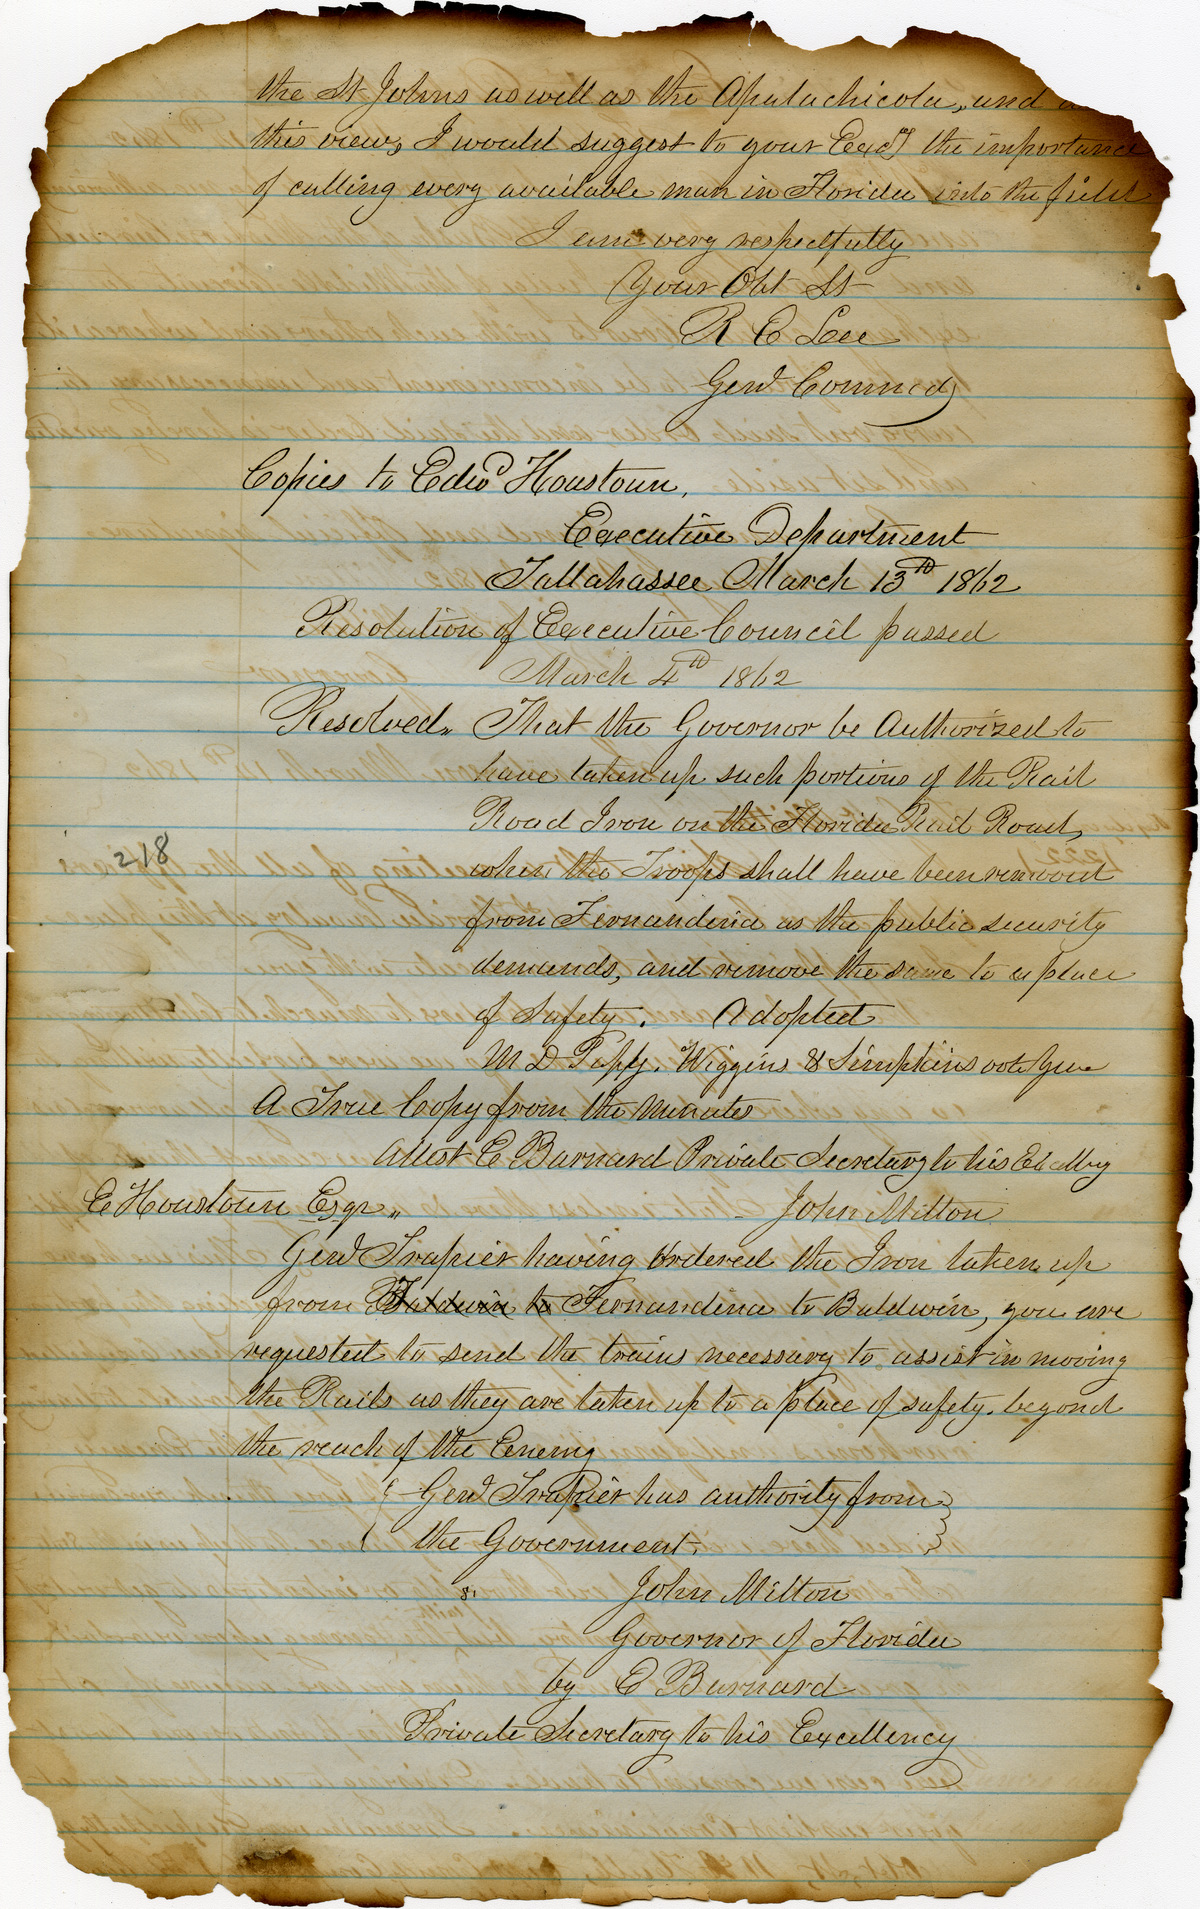 the St Johns as well as the Apalachicola, and
this view, I would suggest to your Excy the importance
of calling every available man in Florida into the field
I am very respectfully
Your Obt St
R E Lee
Genl Commdg
Copies to Edwd Houstoun,
Executive Department
Tallahassee March 13th 1862
Resolution of Executive Council passed
March 4th 1862
Resolved, That the Governor be Authorized to
have taken up such portions of the Rail
Road Iron on the Florida Rail Road,
when the Troops shall have been removed
from Fernandina as the public security
demands, and remove the same to a place
of Safety. Adopted
M D Papy, Wiggins & Simpkins
A True Copy from the Minutes
Attest E Barnard Private Secretary to his
218
John Milton
E Houstoun Esqr
Genl Trapier having Ordered the Iron taken up
from Baldwin to Fernandina to Baldwin, you are
requested to send the trains necessary to assist in moving
the Rails as they are taken up to a place of safety. beyond
the reach of the Enemy
{ Genl Trapier has authority from
the Government. }
John Milton
Governor of Florida
by E Barnard
Private Secretary to his Excellency